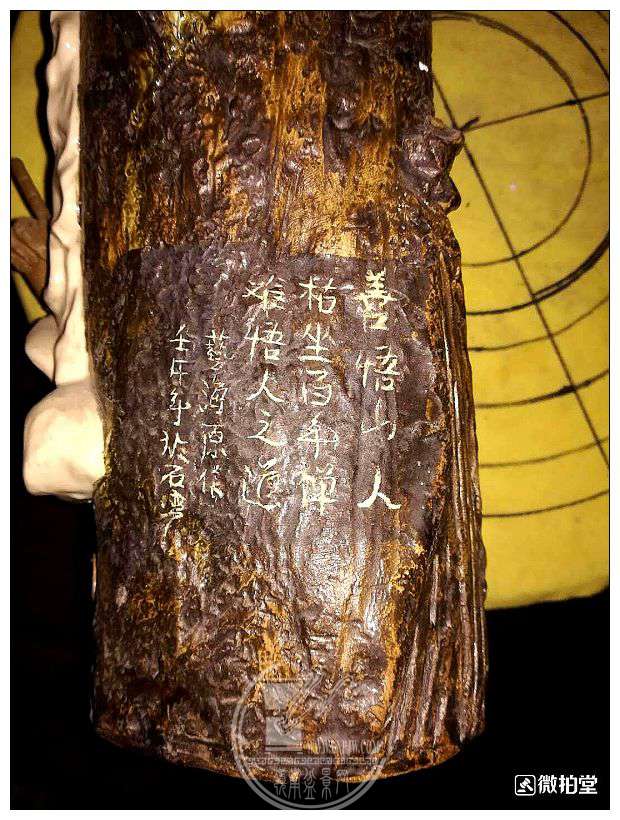 善悟山人
枯坐百年禅
难悟人之道
藝海原作
壬午年於石湾
微拍堂